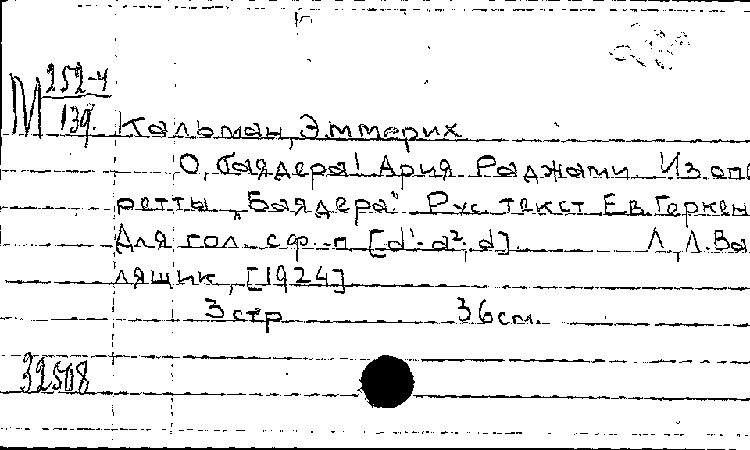 М 252-4
139.
Кальман, Эммерих
О, баядера! Ария Раджами Из опе
ретты „Баядера" Рус. текст Ев. Геркен
Для гол. с ф.-п. [d¹-a²; d]. Л., Л. Ва
лящик, [1924]
3 стр 36 см.
32508